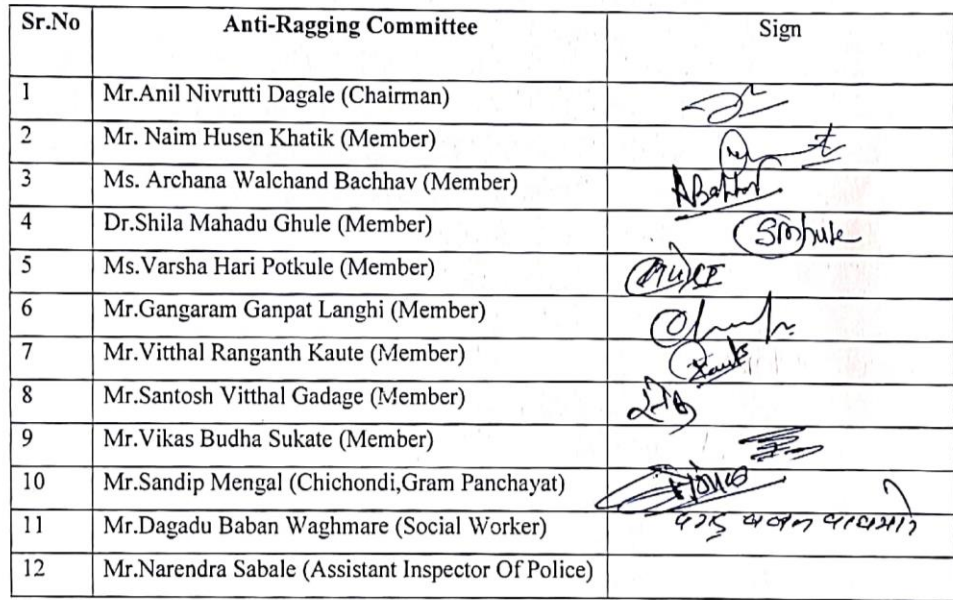 Sr.No Anti-Ragging Committee Sign
1 Mr.Anil Nivrutti Dagale (Chairman)
2 Mr. Naim Husen Khatik (Member)
3 Ms. Archana Walchand Bachhav (Member)
4 Dr.Shila Mahadu Ghule (Member)
5 Ms.Varsha Hari Potkule (Member)
6 Mr.Gangaram Ganpat Langhi (Member)
7 Mr.Vitthal Ranganth Kaute (Member)
8 Mr.Santosh Vitthal Gadage (Member)
9 Mr.Vikas Budha Sukate (Member)
10 Mr.Sandip Mengal (Chichondi,Gram Panchayat)
11 Mr.Dagadu Baban Waghmare (Social Worker)
12 Mr.Narendra Sabale (Assistant Inspector Of Police)